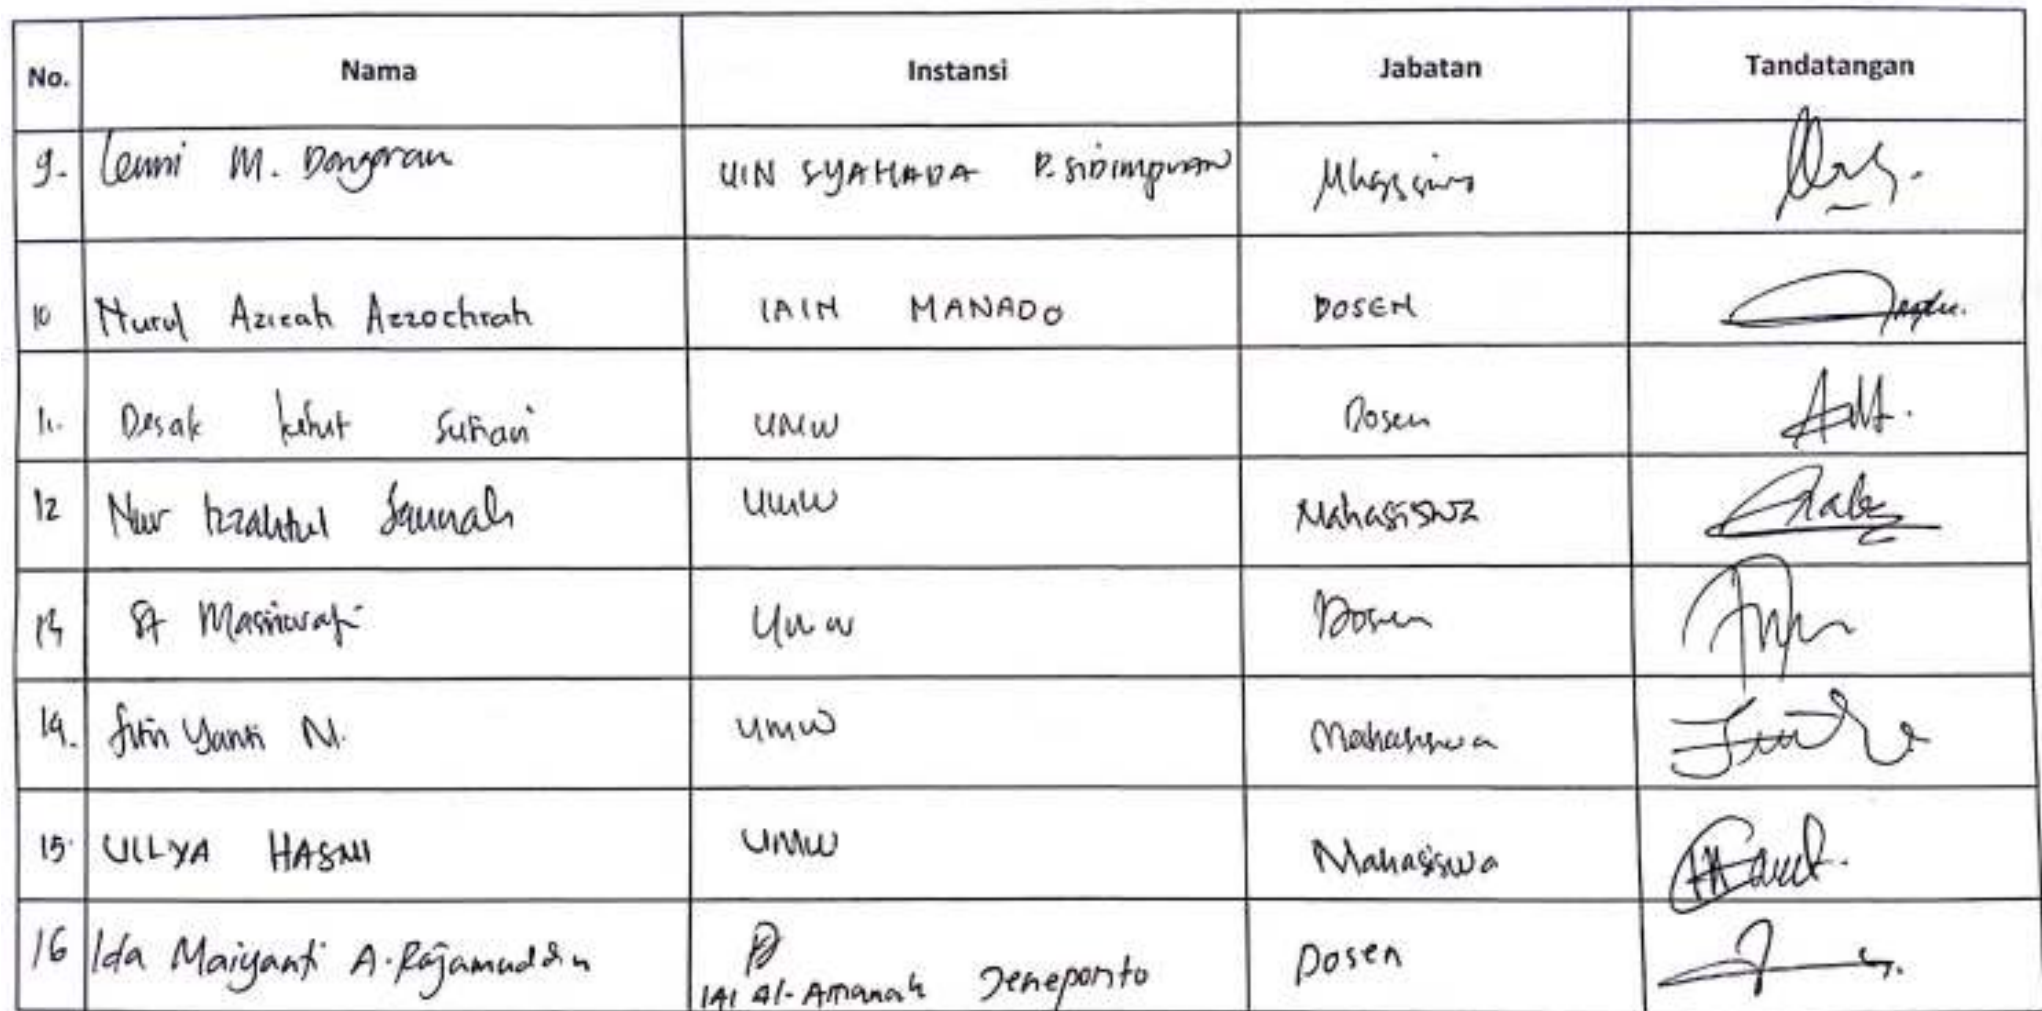 No. Nama Instansi Jabatan Tandatangan
9. Lenni M. Dongoran UIN SYAHADA P. SIDIMPUAN
10 Nurul Azizah Azzochrah IAIN MANADO DOSEN
11. Desak Ketut Sutiari UMW Dosen
12 Nur Izzahtul Jannah UMW Mahasiswa
13 St Masniarati UMW Dosen
14. Fitri Yanti N. UMW Mahasiswa
15. ULLYA HASMI UMW Mahasiswa
16 Ida Maiyanti A. Rajamuddin IAI Al-Amanah Jeneponto Dosen